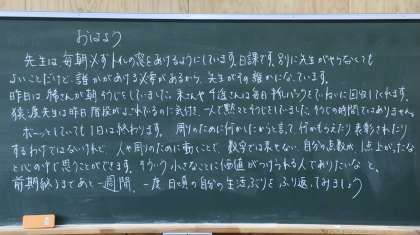 おはよう
先生は毎朝必ずトイレの窓をあけるようにしています。日課です。別に先生がやらなくても
よいことだけど、誰かがあける必要があるから、先生がその誰かになっています。
昨日は さんが朝そうじをしていました。 さんや さんは毎日 ていねいに回収してくれます。
先生は昨日 階段がよごれているのに気付き、一人で黙々とそうじをしていました。そうじの時間ではありません。
ボーッとしていても1日は終わります。 周りのために何かしたからと言って、何かもらえたり表彰されたり
するわけではないけれど、人や周りのために動くことで、数字では表せない、自分の点数が1点上がったな
と心の中で思うことができます。そういう小さなことに価値がつけられる人でありたいなと。
前期終了まであと一週間。 一度 日頃の自分の生活ぶりを、ふり返ってみましょう